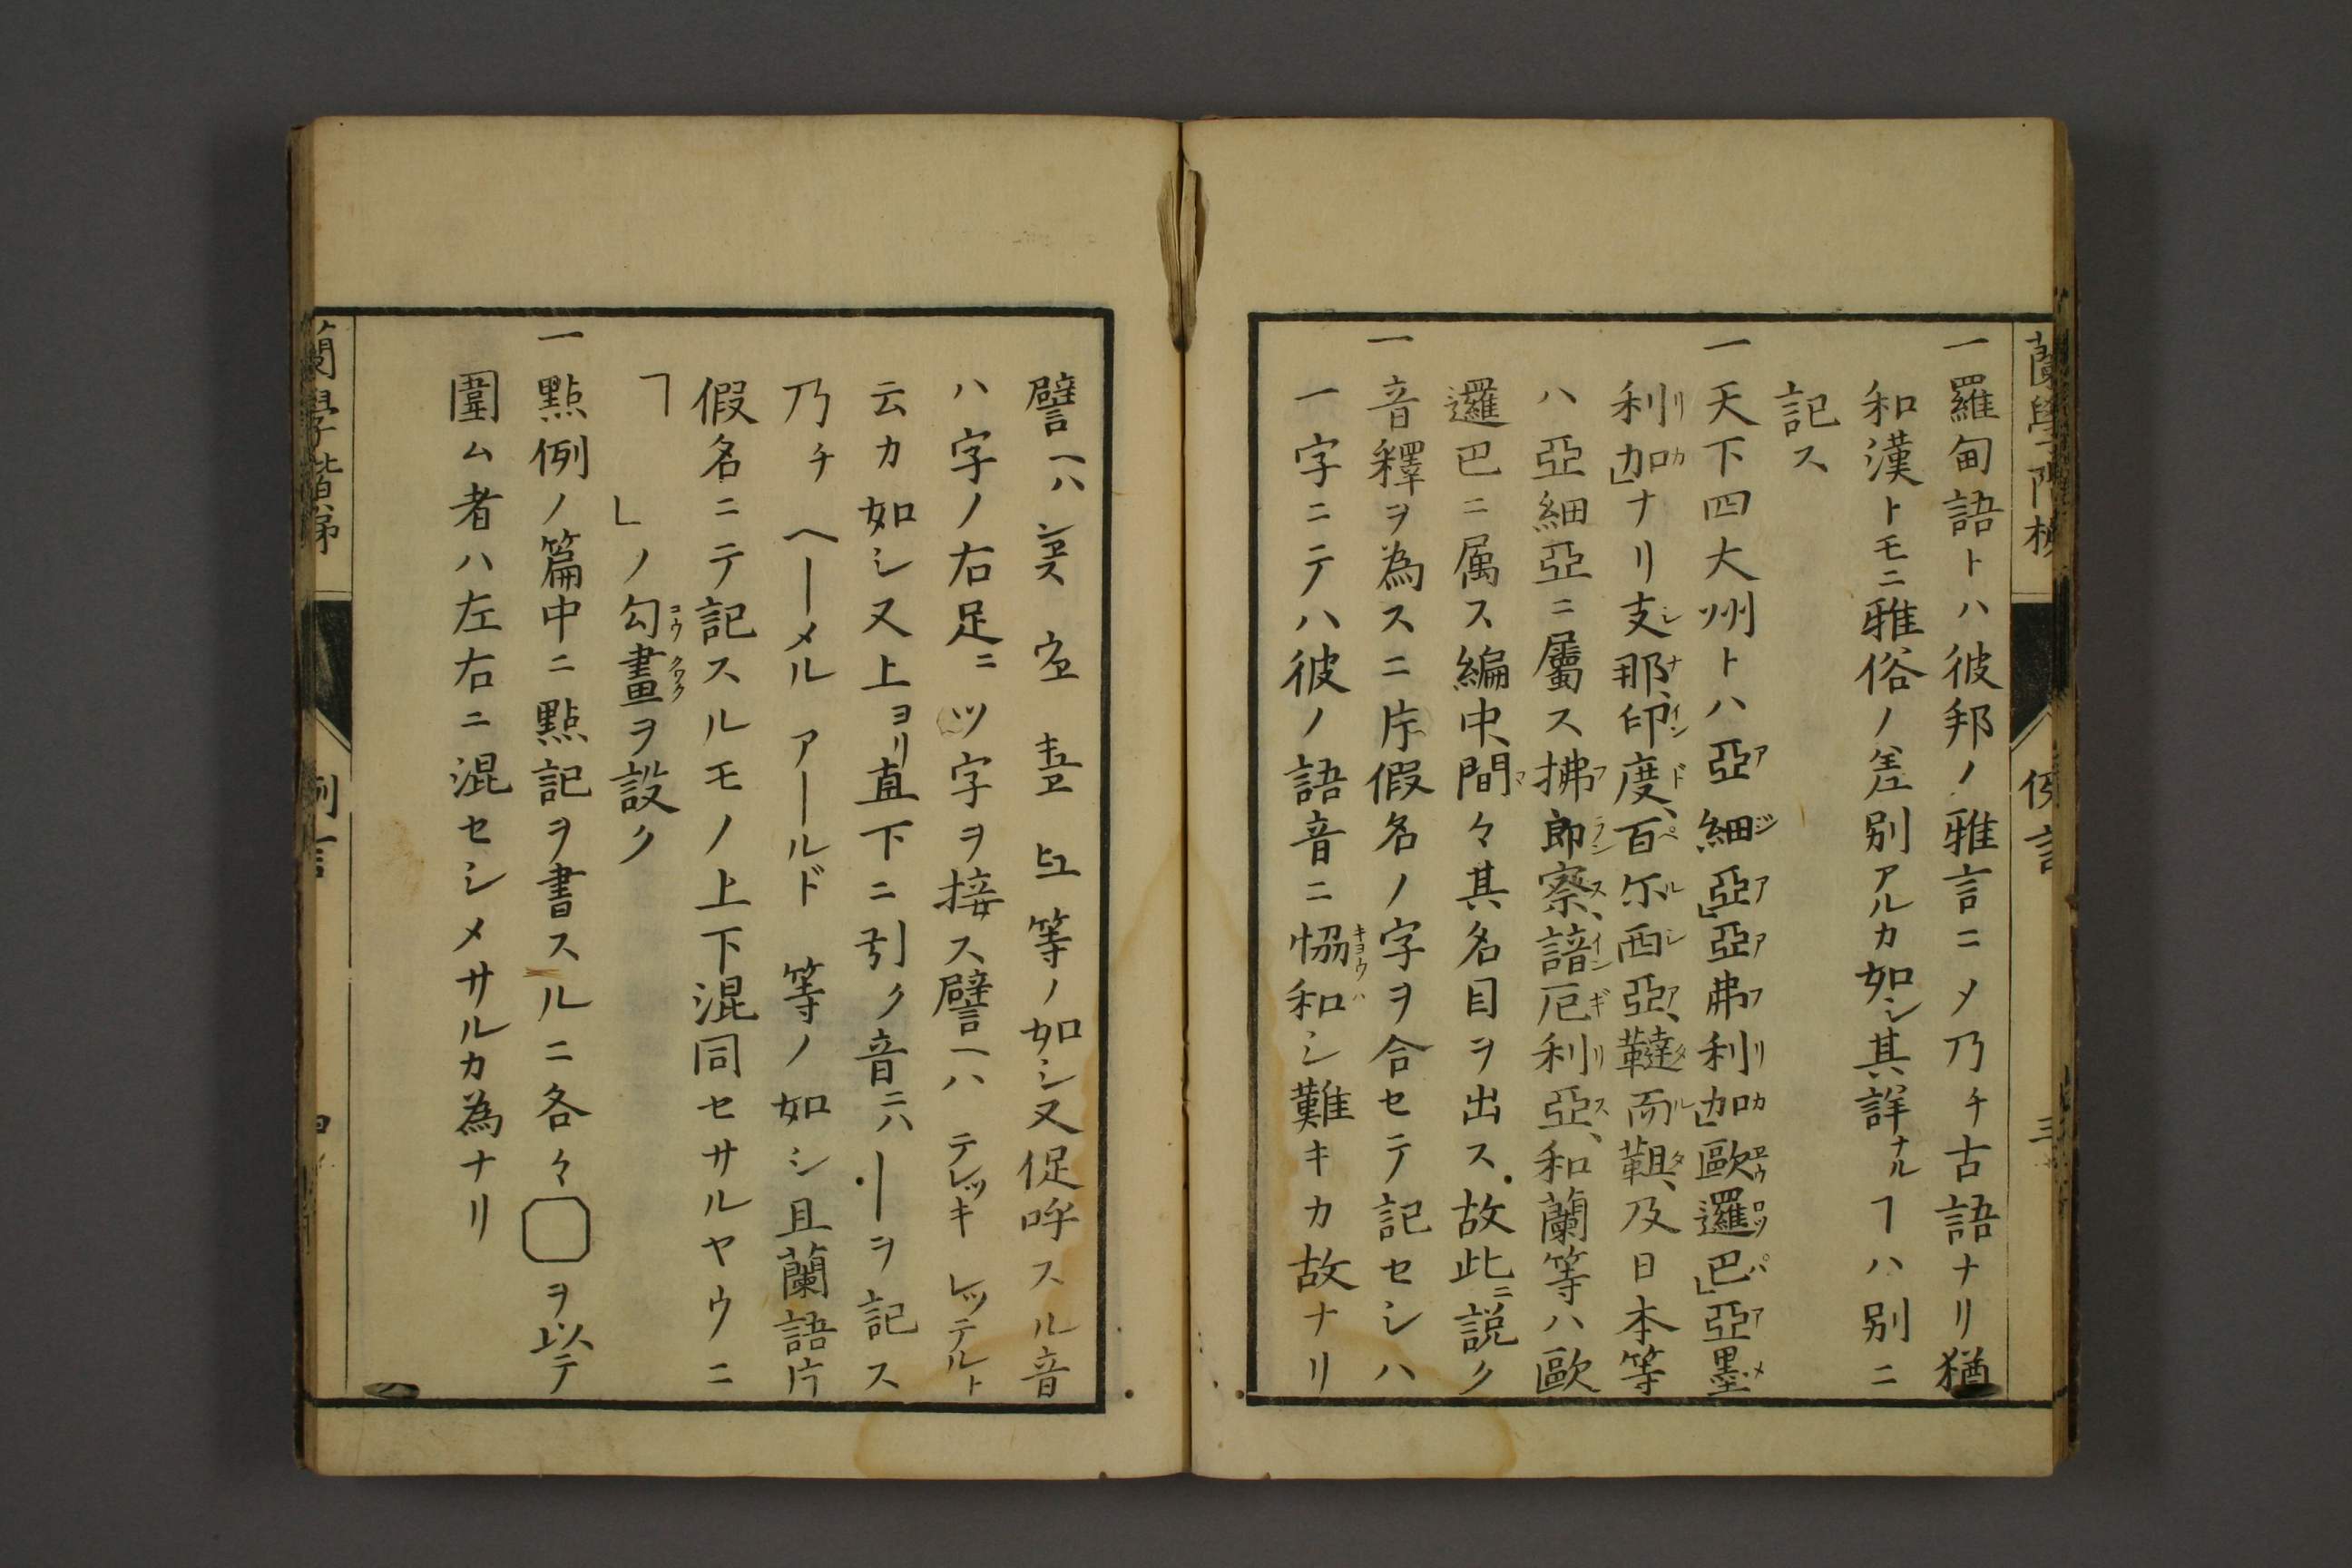 蘭學階梯
例言
三
一羅甸語トハ彼邦ノ雅言ニメ乃チ古語ナリ猶
和漢トモニ雅俗ノ差別アルカ如シ其詳ナルヿハ別ニ
記ス
一天下四大州トハ亞細亞」亞弗利加」歐邏巴」亞墨
利加」ナリ支那、印度、百尓西亞、韃而靼、及日本等
ハ亞細亞ニ屬ス拂郎察、諳厄利亞、和蘭等ハ歐
邏巴ニ属ス編中、間々其名目ヲ出ス故此ニ説ク
一音釋ヲ為スニ片假名ノ字ヲ合セテ記セシハ
一字ニテハ彼ノ語音ニ恊和シ難キカ故ナリ
譬ヘハ 等ノ如シ又促呼スル音
ハ字ノ右足ニッ字ヲ接ス譬ヘハ テレッキ レッテルト
云カ如シ又上ヨリ直下ニ引ク音ニハ ー ヲ記ス
乃チ ヘーメル アールド 等ノ如シ且蘭語片
假名ニテ記スルモノ上下混同セサルヤウニ
「 」ノ勾畫ヲ設ク
一點例ノ篇中ニ點記ヲ書スルニ各々 ヲ以テ
圍ム者ハ左右ニ混セシメサルカ為ナリ
蘭學階梯
例言